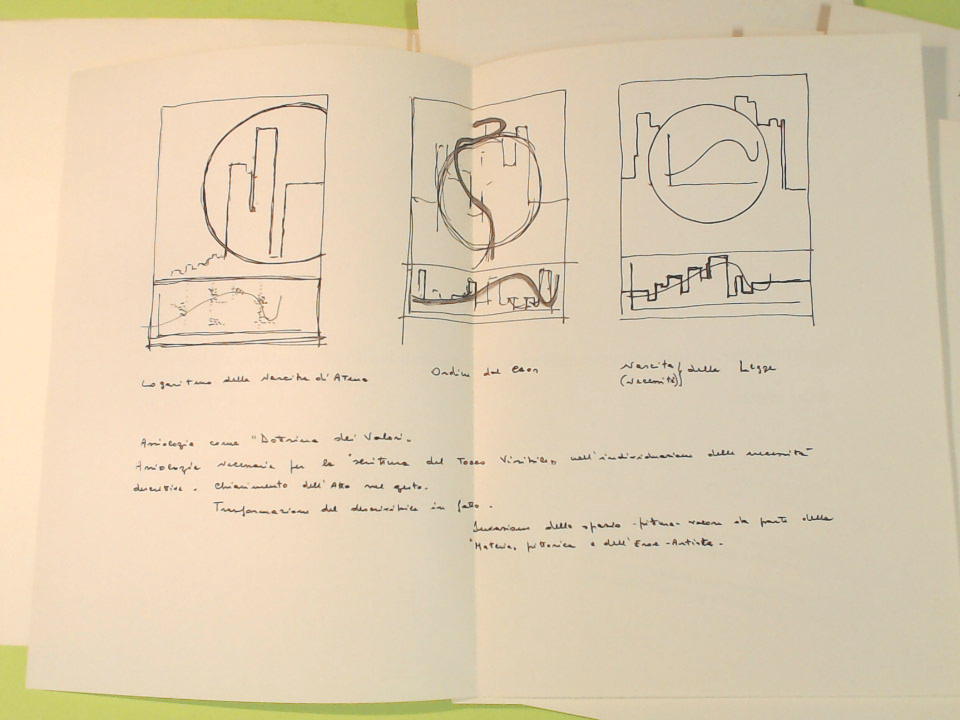 Logaritmo della Nascita d'Atena
Ordine dal caos
Nascita della Legge
(necessità)
Assiologia come "Dottrina dei Valori.
Assiologia necessaria per la "scrittura del Tocco Visibile, nell'individuazione delle necessità
descrittive. Chiarimento dell'Atto nel gesto.
Trasformazione del descrivibile in fatto.
dello spazio-pittura-valore da parte della
"Materia, pittorica e dell'Eroe-Artista.